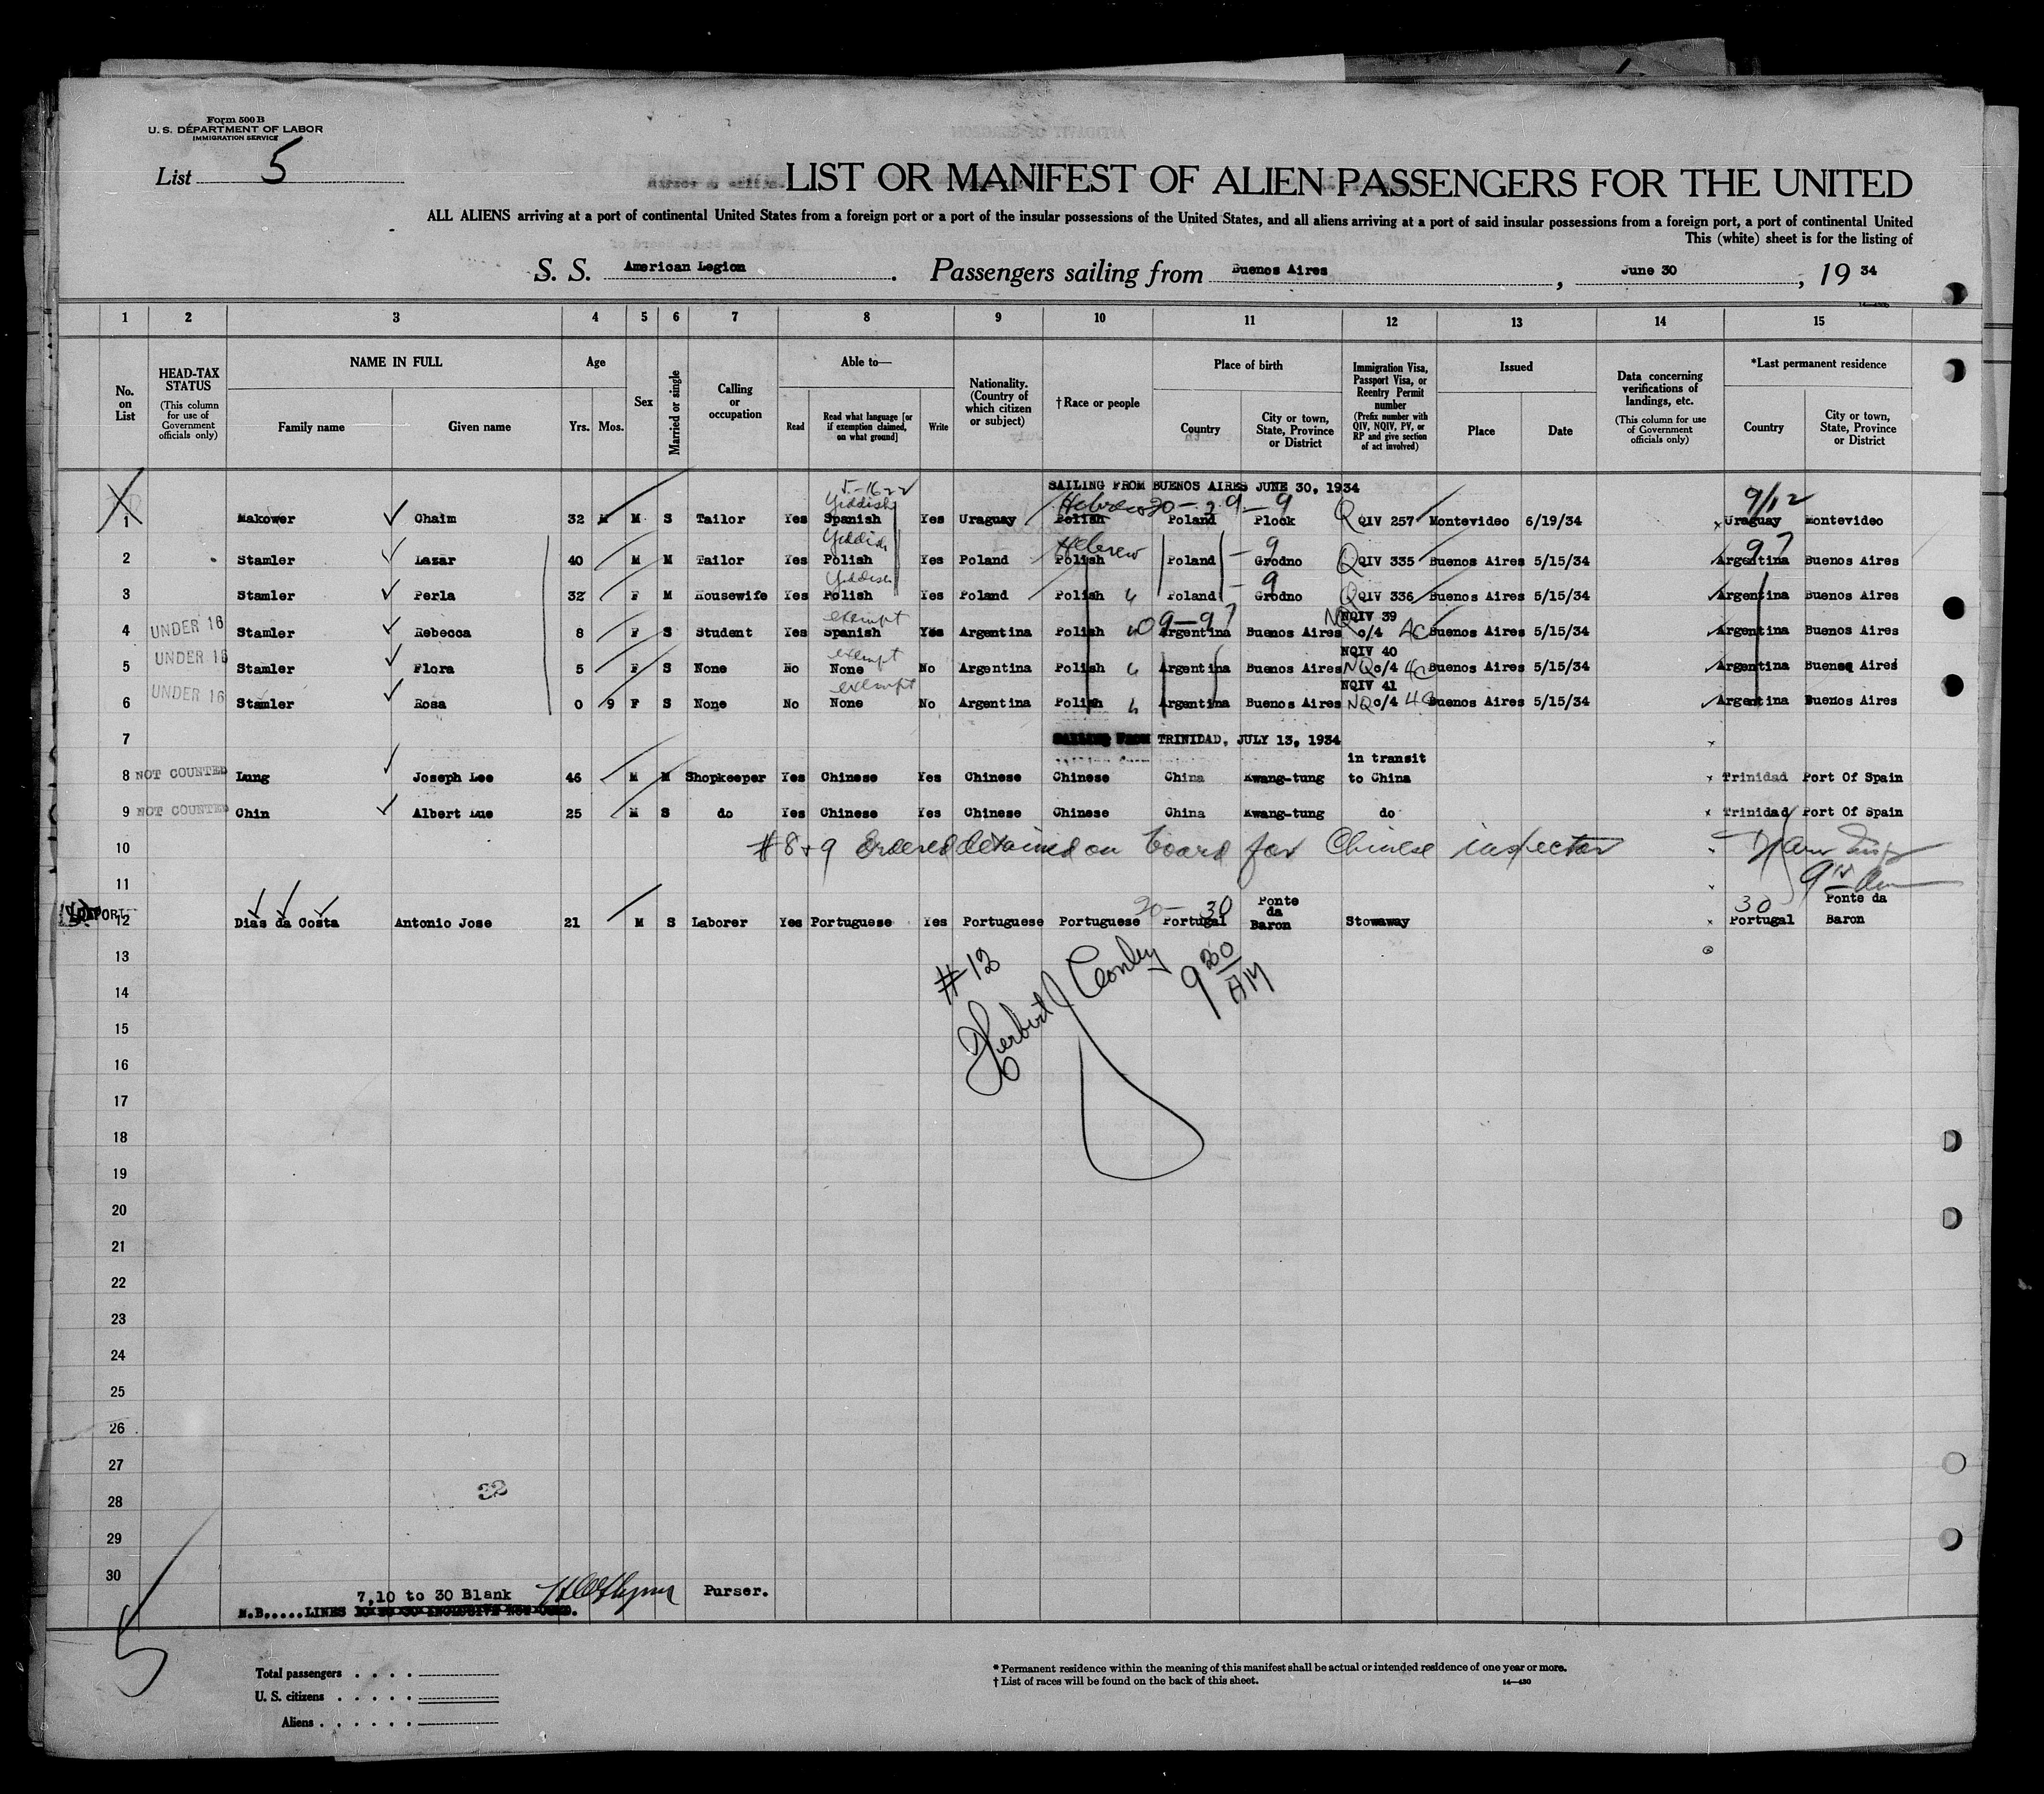 Form 500 B
U. S. DEPARTMENT OF LABOR
IMMIGRATION SERVICE
List 5
LIST OR MANIFEST OF ALIEN PASSENGERS FOR THE UNITED
ALL ALIENS arriving at a port of continental United States from a foreign port or a port of the insular possessions of the United States, and all aliens arriving at a port of said insular possessions from a foreign port, a port of continental United
This (white) sheet is for the listing of
S. S. American Legion. Passengers sailing from Buenos Aires, June 30, 19 34
1 2 3 4 5 6 7 8 9 10 11 12 13 14 15
No. on List
HEAD-TAX STATUS (This column for use of Government officials only)
NAME IN FULL
Family name Given name
Age
Yrs. Mos.
Sex
Married or single
Calling or occupation
Able to—
Read Read what language [or if exemption claimed, on what ground] Write
Nationality. (Country of which citizen or subject)
†Race or people
Place of birth
Country City or town, State, Province or District
Immigration Visa, Passport Visa, or Reentry Permit number (Prefix number with QIV, NQIV, PV, or RP and give section of act involved)
Issued
Place Date
Data concerning verifications of landings, etc. (This column for use of Government officials only)
*Last permanent residence
Country City or town, State, Province or District
SAILING FROM BUENOS AIRES JUNE 30, 1934
5-1622
Yiddish Hebrew 20-29-9 9/12
1 Makower Chaim 32 M M S Tailor Yes Spanish Yes Uraguay Polish Poland Plock Q QIV 257 Montevideo 6/19/34 Uraguay Montevideo
Yiddish Hebrew - 9 97
2 Stamler Lazar 40 M M Tailor Yes Polish Yes Poland Polish Poland Grodno Q QIV 335 Buenos Aires 5/15/34 Argentina Buenos Aires
Yiddish - 9
3 Stamler Perla 32 F M Housewife Yes Polish Yes Poland Polish Poland Grodno Q QIV 336 Buenos Aires 5/15/34 Argentina Buenos Aires
exempt 09-97 NQ NQIV 39
4 UNDER 16 Stamler Rebecca 8 F S Student Yes Spanish Yes Argentina Polish Argentina Buenos Aires c/4 4C Buenos Aires 5/15/34 Argentina Buenos Aires
exempt NQIV 40
5 UNDER 16 Stamler Flora 5 F S None No None No Argentina Polish Argentina Buenos Aires NQ c/4 4C Buenos Aires 5/15/34 Argentina Buenos Aires
exempt NQIV 41
6 UNDER 16 Stamler Rosa 0 9 F S None No None No Argentina Polish Argentina Buenos Aires NQ c/4 4C Buenos Aires 5/15/34 Argentina Buenos Aires
7 SAILING FROM TRINIDAD, JULY 13, 1934
in transit
8 NOT COUNTED Lung Joseph Lee 46 M M Shopkeeper Yes Chinese Yes Chinese Chinese China Kwang-tung to China Trinidad Port Of Spain
9 NOT COUNTED Chin Albert Lue 25 M S do Yes Chinese Yes Chinese Chinese China Kwang-tung do Trinidad Port Of Spain
10 #8+9 Ordered detained on board for Chinese inspector
11
20-30 Ponte da 30 Ponte da
12 Dias da Costa Antonio Jose 21 M S Laborer Yes Portuguese Yes Portuguese Portuguese Portugal Baron Stowaway Portugal Baron
13
#12
Herbert J Conley
9 30 AM
14
15
16
17
18
19
20
21
22
23
24
25
26
27
32
28
29
30
7,10 to 30 Blank Purser.
N.B.....LINES
5
Total passengers
U. S. citizens
Aliens
* Permanent residence within the meaning of this manifest shall be actual or intended residence of one year or more.
† List of races will be found on the back of this sheet.
14—430